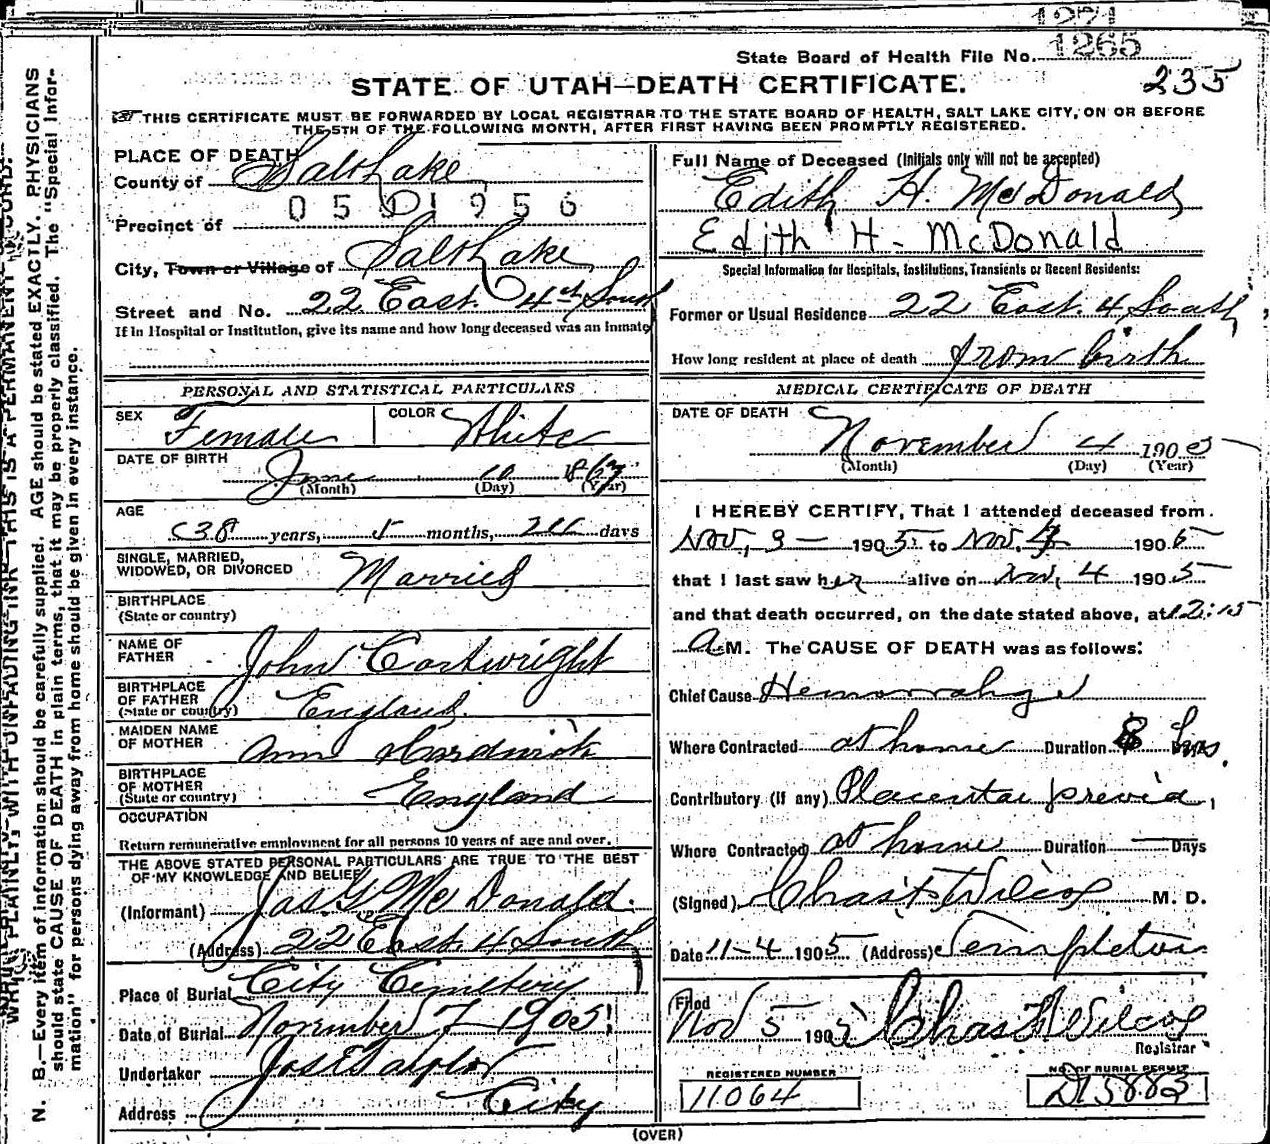 1271
1265
State Board of Health File No.
STATE OF UTAH—DEATH CERTIFICATE.
235
THIS CERTIFICATE MUST BE FORWARDED BY LOCAL REGISTRAR TO THE STATE BOARD OF HEALTH, SALT LAKE CITY, ON OR BEFORE
THE 5TH OF THE FOLLOWING MONTH, AFTER FIRST HAVING BEEN PROMPTLY REGISTERED.
PLACE OF DEATH
County of Salt Lake
0501956
Precinct of
City, Town or Village of Salt Lake
Street and No. 22 East 4th South
If in Hospital or Institution, give its name and how long deceased was an Inmate
PERSONAL AND STATISTICAL PARTICULARS
SEX Female COLOR White
DATE OF BIRTH June 10 1867
(Month) (Day) (Year)
AGE 38 years, 5 months, days
SINGLE, MARRIED,
WIDOWED, OR DIVORCED Married
BIRTHPLACE
(State or country)
NAME OF
FATHER John Cartwright
BIRTHPLACE
OF FATHER England
(State or country)
MAIDEN NAME
OF MOTHER Ann Hardwick
BIRTHPLACE
OF MOTHER England
(State or country)
OCCUPATION
Return remunerative employment for all persons 10 years of age and over.
THE ABOVE STATED PERSONAL PARTICULARS ARE TRUE TO THE BEST
OF MY KNOWLEDGE AND BELIEF
(Informant) Jas G McDonald.
(Address) 22 East 4 South
Place of Burial City Cemetery
Date of Burial November 7 1905
Undertaker Jos E Taylor
Address City
Full Name of Deceased (Initials only will not be accepted)
Edith H. McDonald
Edith H- McDonald
Special Information for Hospitals, Institutions, Transients or Recent Residents:
Former or Usual Residence 22 East. 4, South,
How long resident at place of death from birth
MEDICAL CERTIFICATE OF DEATH
DATE OF DEATH
November 4 1905
(Month) (Day) (Year)
I HEREBY CERTIFY, That I attended deceased from
Nov, 3 — 1905 to Nov. 4 1905
that I last saw her alive on Nov, 4 1905
and that death occurred, on the date stated above, at 12:15
A M. The CAUSE OF DEATH was as follows:
Chief Cause Hemorrahge
Where Contracted at home Duration 8 hrs.
Contributory (if any) Placenta previa,
Where Contracted at home Duration — Days
(Signed) Chas F Wilcox M. D.
Date 11-4 1905 (Address) Templeton
Filed
Nov 5 1905 Chas F Wilcox
Registrar
REGISTERED NUMBER
11064
NO. OF BURIAL PERMIT
D15882
(OVER)
N. B.—Every item of information should be carefully supplied. AGE should be stated EXACTLY. PHYSICIANS
should state CAUSE OF DEATH in plain terms, that it may be properly classified. The "Special Infor-
mation" for persons dying away from home should be given in every instance.
WRITE PLAINLY, WITH UNFADING INK—THIS IS A PERMANENT RECORD.